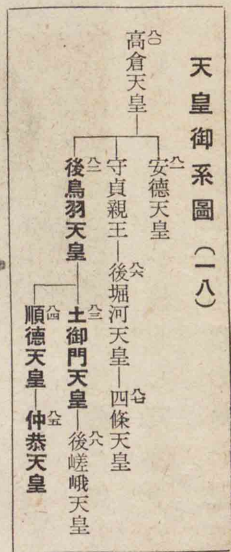 天皇御系圖（一八）
八〇
高倉天皇
八一
安德天皇
守貞親王
八六
後堀河天皇
八七
四條天皇
八二
後鳥羽天皇
八三
土御門天皇
八八
後嵯峨天皇
八四
順德天皇
八五
仲恭天皇